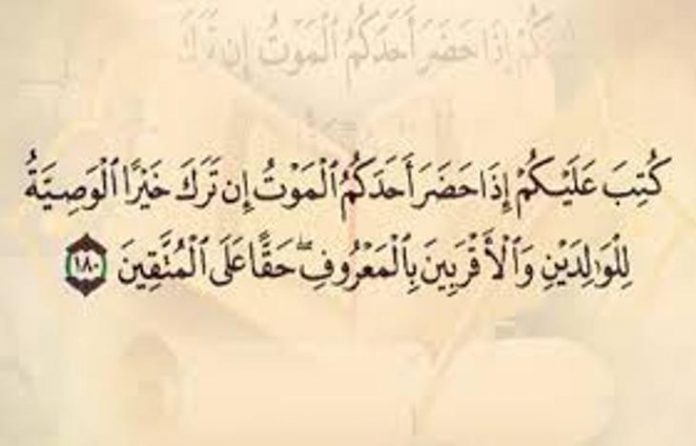 كُمْ إِذَا حَضَرَ أَحَدَكُمُ ٱلْمَوْتُ إِن تَرَكَ
كُتِبَ عَلَيْكُمْ إِذَا حَضَرَ أَحَدَكُمُ ٱلْمَوْتُ إِن تَرَكَ خَيْرًا ٱلْوَصِيَّةُ
لِلْوَٰلِدَيْنِ وَٱلْأَقْرَبِينَ بِٱلْمَعْرُوفِ ۖ حَقًّا عَلَى ٱلْمُتَّقِينَ ١٨٠